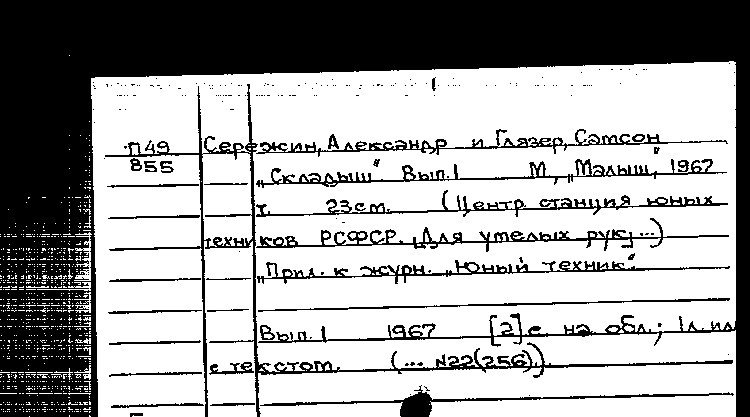 П49 Сережин, Александр и Глязер, Самсон
855
„Складыш". Вып. 1 М., „Малыш", 1967
т. 23см. (Центр. станция юных
техников РСФСР. [Для умелых рук]...)
„Прил. к журн. „Юный техник".
Вып. 1 1967 [2]с. на обл.; 1л. ил
с текстом. (... №22(256)).